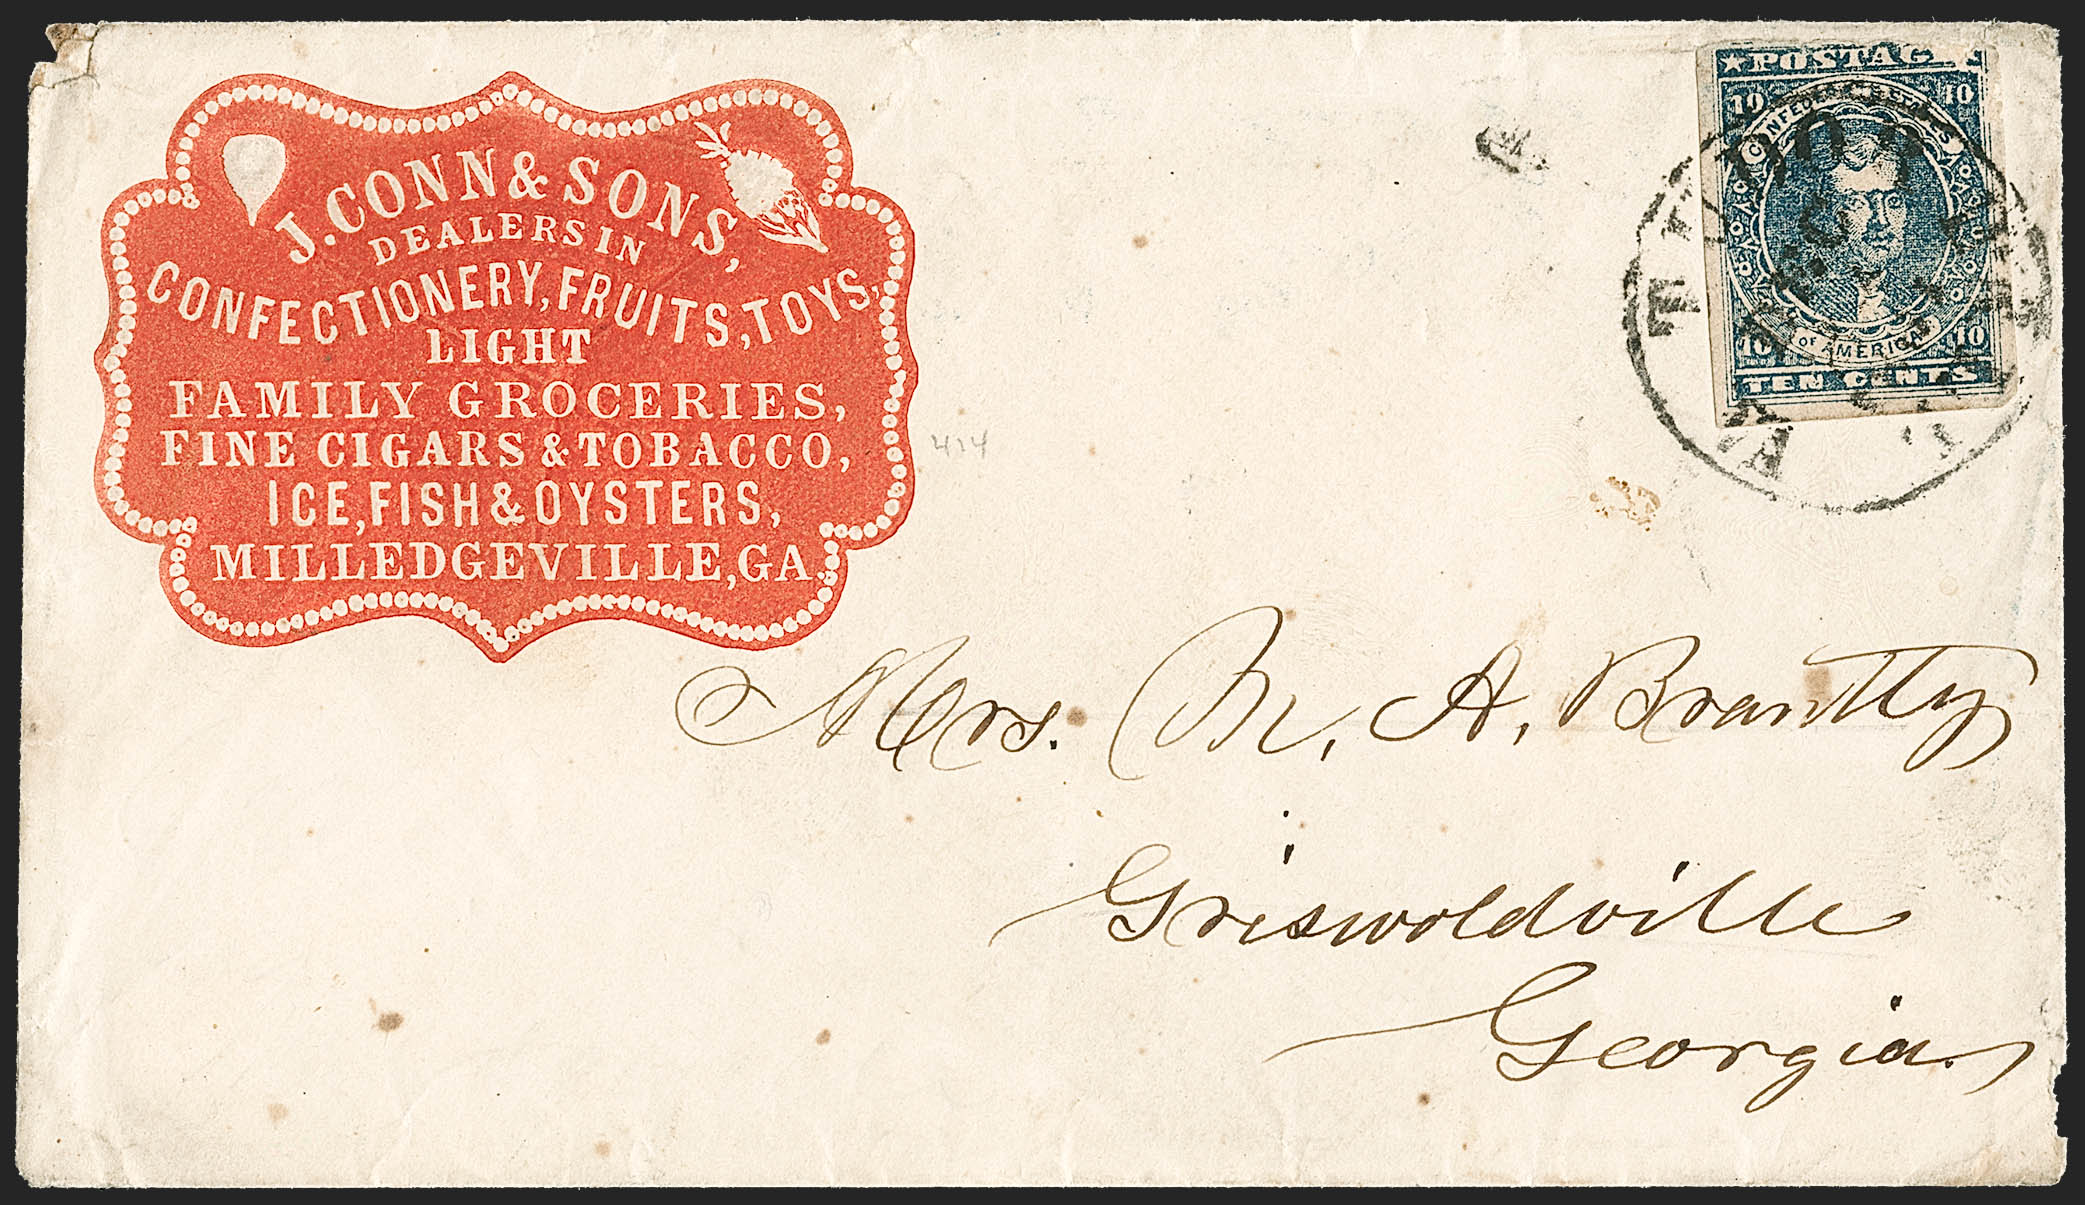 J. CONN & SONS,
DEALERS IN
CONFECTIONERY, FRUITS, TOYS,
LIGHT
FAMILY GROCERIES,
FINE CIGARS & TOBACCO,
ICE, FISH & OYSTERS,
MILLEDGEVILLE, GA.
414
★ POSTAGE
10 10
OF AMERICA
10 10
TEN CENTS
VA
Mrs. M. A. Brantly
Griswoldville
Georgia.